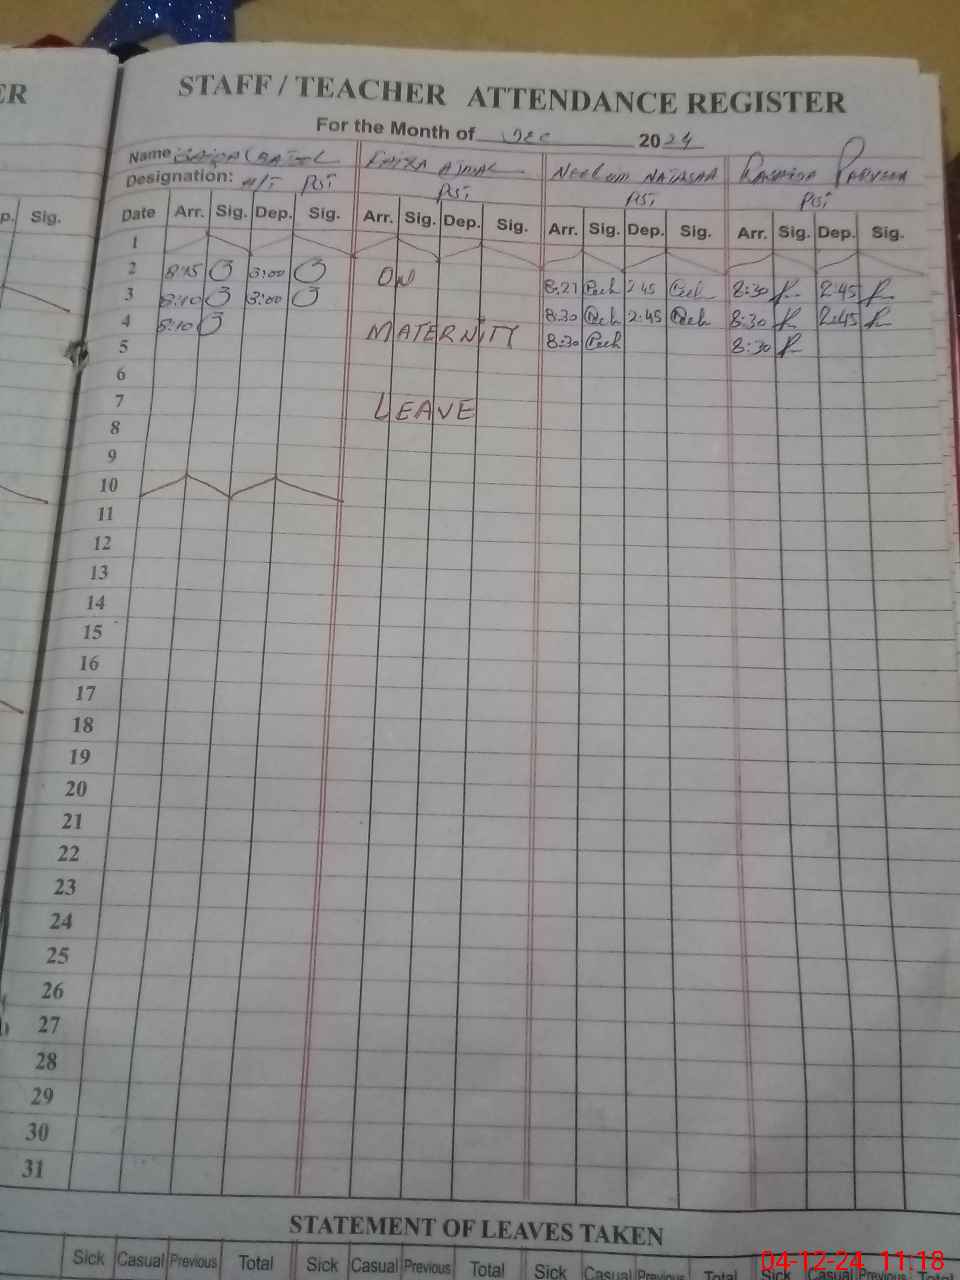 ER
STAFF / TEACHER ATTENDANCE REGISTER
For the Month of Dec 2024
Name AJMAL NEELUM NATASHA PARVEEN
Designation: H/T PST PST PST PST
p. Sig. Date Arr. Sig. Dep. Sig. Arr. Sig. Dep. Sig. Arr. Sig. Dep. Sig. Arr. Sig. Dep. Sig.
1
2 8:15 3:00 ON 8:21 2:45 8:30 2:45
3 8:10 3:00 8:30 2:45 8:30 2:45
4 8:10 MATERNITY 8:30 8:30
5
6
7 LEAVE
8
9
10
11
12
13
14
15
16
17
18
19
20
21
22
23
24
25
26
27
28
29
30
31
STATEMENT OF LEAVES TAKEN
Sick Casual Previous Total Sick Casual Previous Total Sick Casual Previous Total Sick
04-12-24 11:18